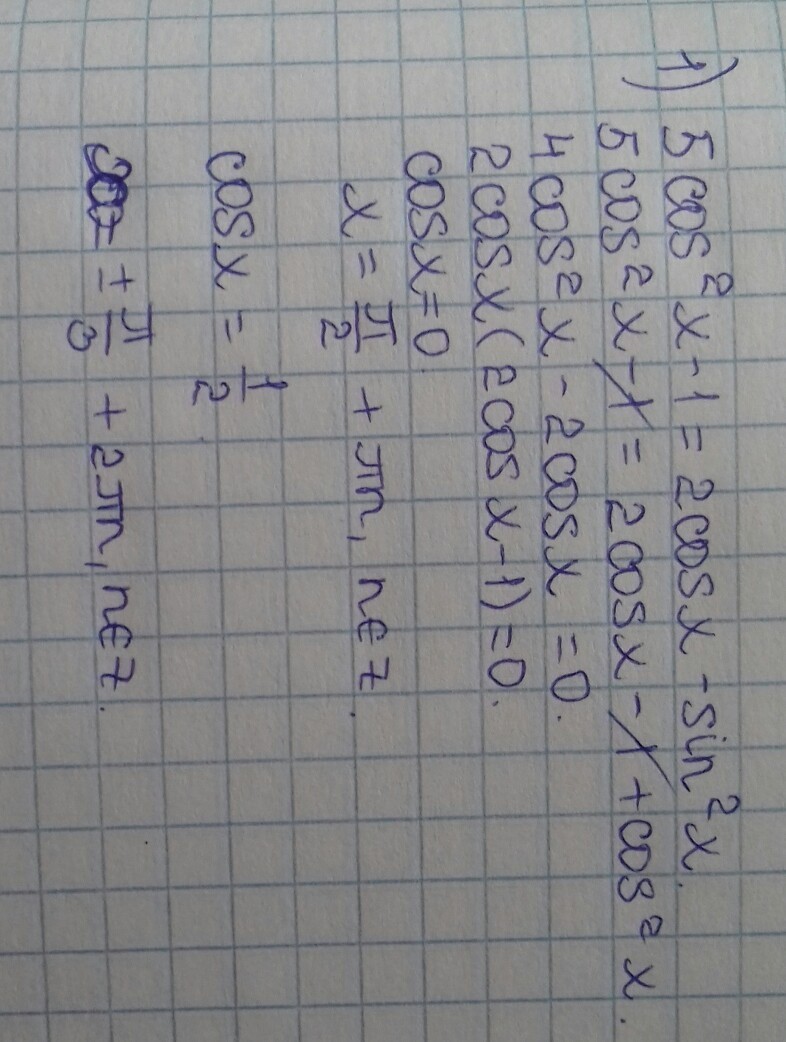 1) 5cos²x-1=2cosx-sin²x.
5cos²x-1=2cosx-1+cos²x.
4cos²x-2cosx=0.
2cosx(2cosx-1)=0.
cosx=0.
x=π/2+πn, n∈Z.
cosx=1/2.
±π/3+2πn, n∈Z.